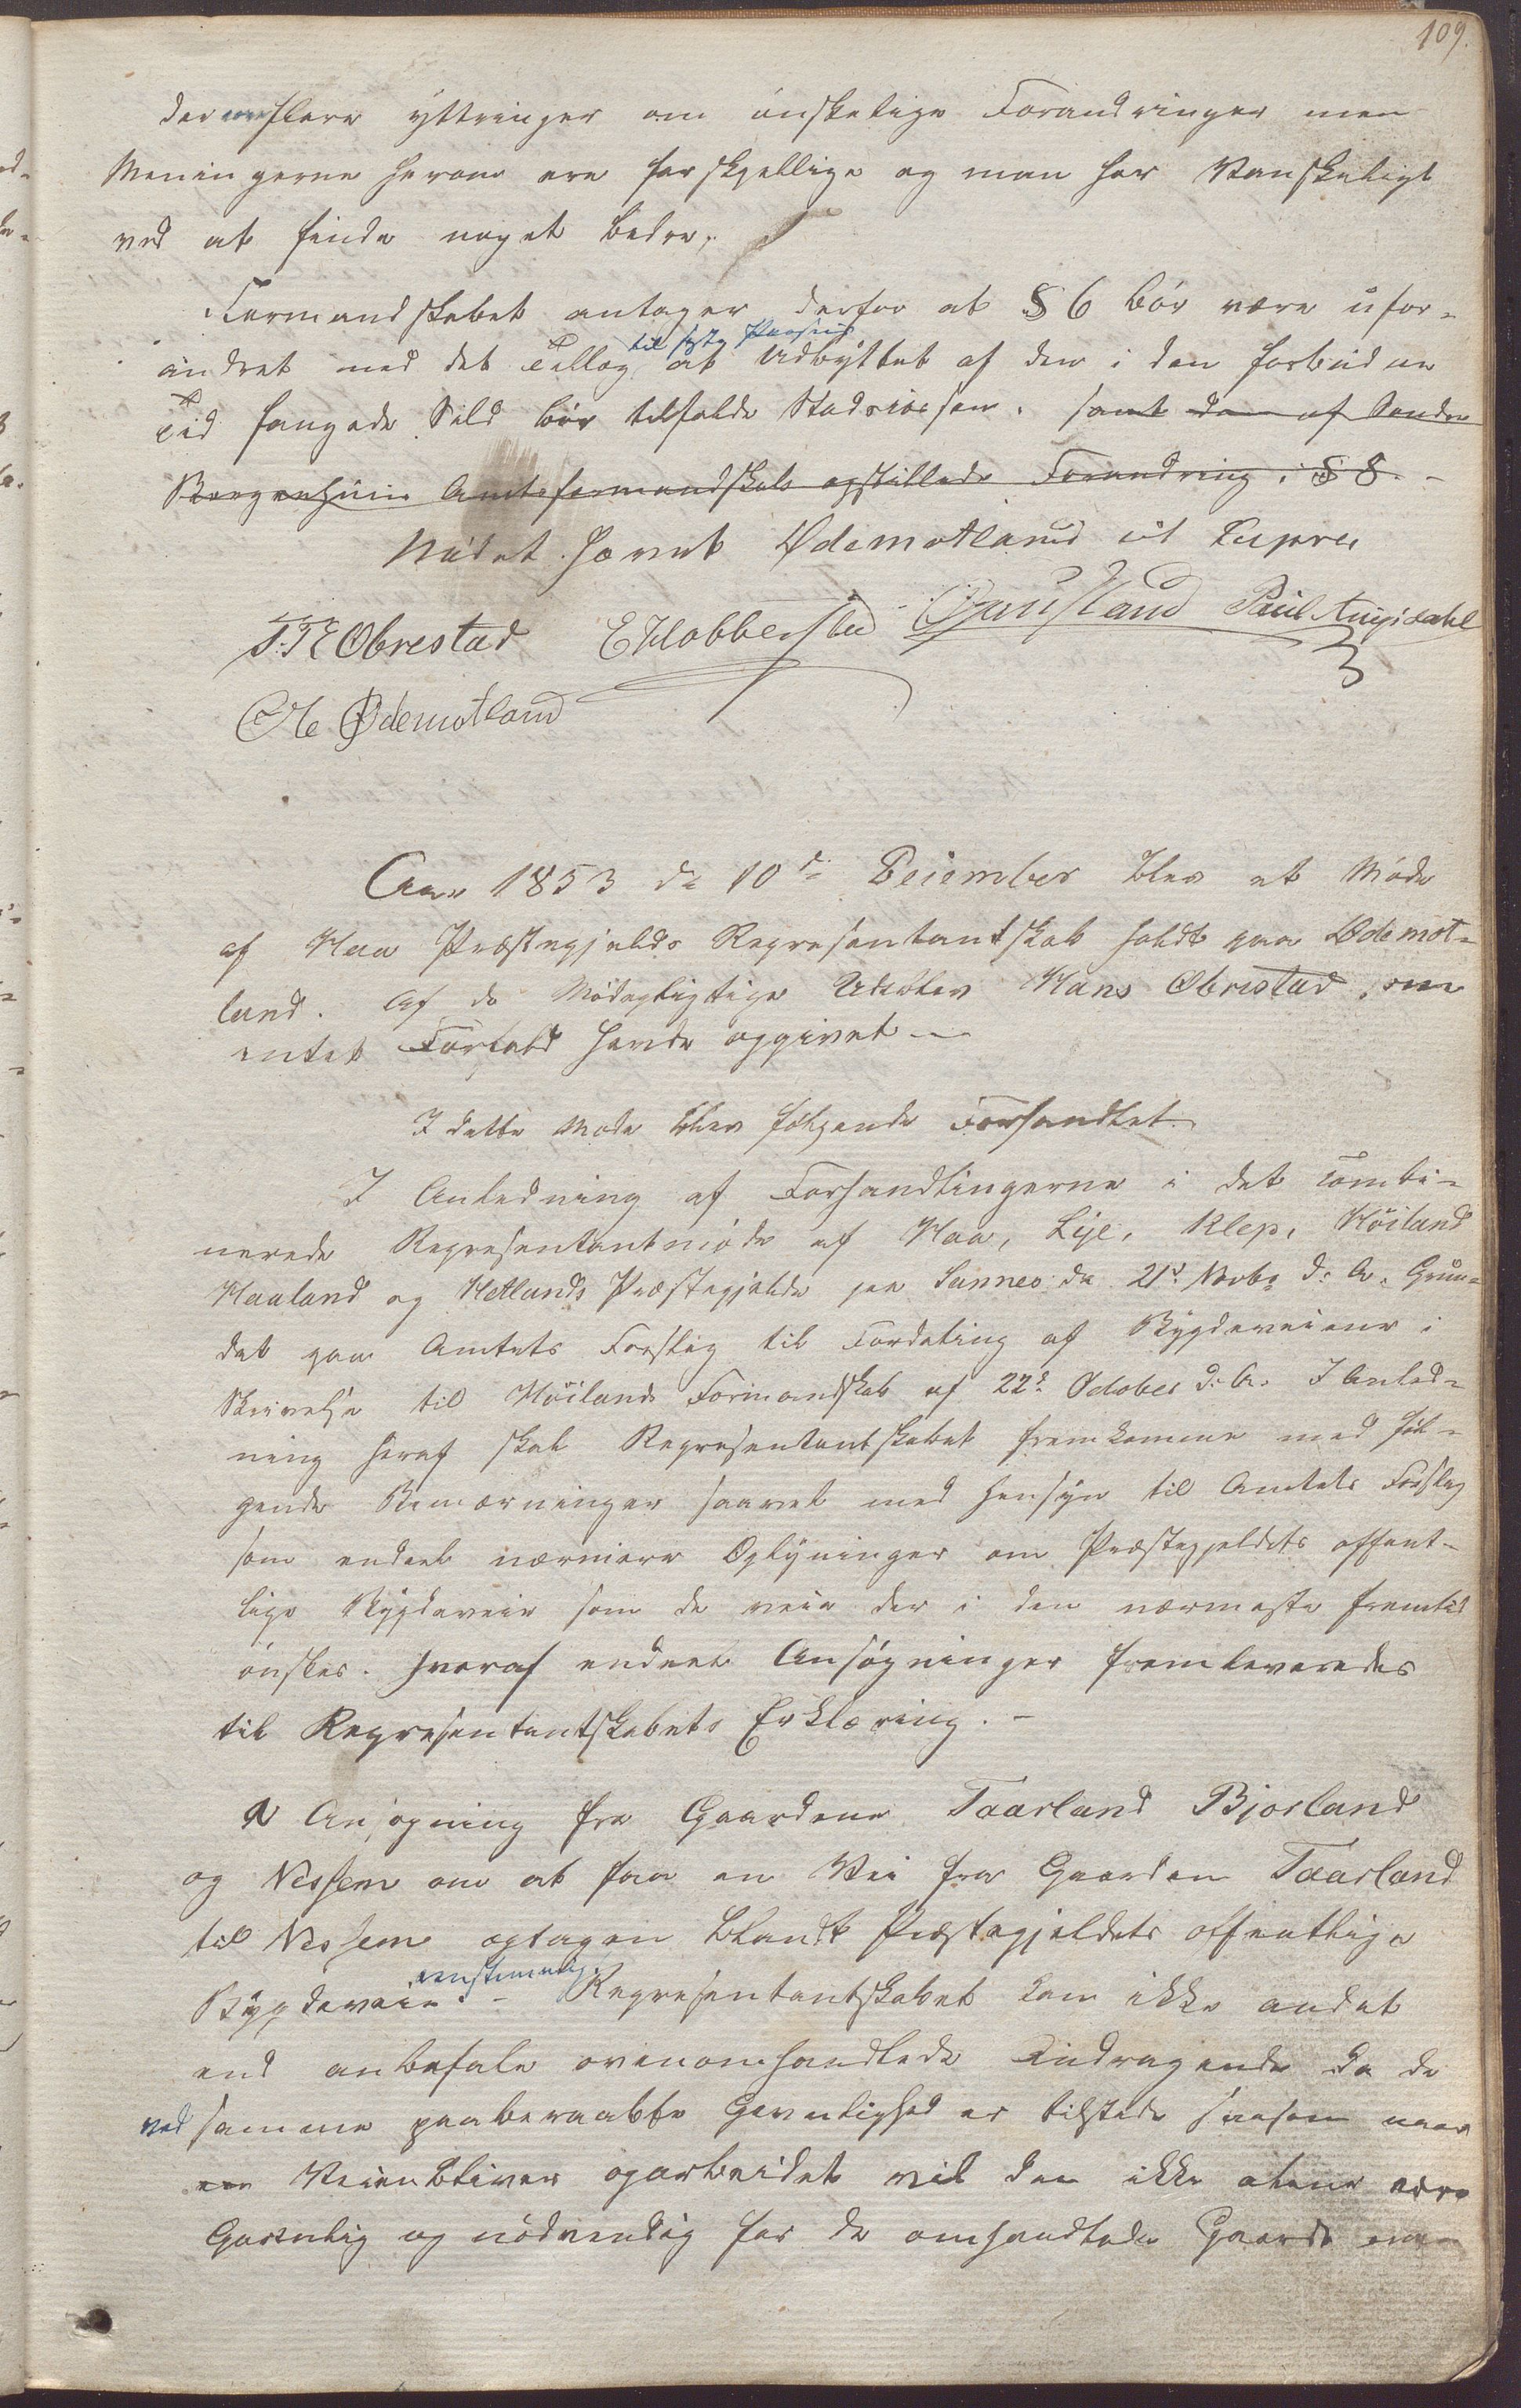 109.
der flere yttringer om ønskelige Forandringer men
Meningerne herom ere forskjellige og man har Vanskeligt
ved at finde noget bedre.
Formandskabet antager derfor at § 6 bør være ufor-
til sidste Passus
andret med det Tillæg at Udbyttet af den i den forbudne
Tid fangede Sild bør tilfalde Stadscassen. samt den af Søndre
Bergenhuus Amtsformandskab opstillede Forandring i § 8. -
Mødet hævet Ødemotland ut supra
T. T. Obrestad E Hobberstad Gausland Paul Aniksdahl
Ole Ødemotland
Aar 1853 de 10de December blev et Møde
af Haa Præstegjelds Representantskab holdt paa Ødemot-
land. Af de Mødepligtige Udeblev Hans Obrestad, som
intet Forfald havde opgivet -
I dette Møde blev følgende Forhandlet.
I Anledning af Forhandlingerne i det combi-
nerede Representantmøde af Haa, Lye, Klep, Høiland
Haaland og Hetlands Præstegjelde paa Sannes de 21d Novbr d: A. Grun-
det paa Amtets Forslag til Fordeling af Bygdeveiene i
Skrivelse til Høilands Formandskab af 22d October d: A. I Anled-
ning heraf skal Representantskabet fremkomme med føl-
gende Bemærninger saavel med Hensyn til Amtets Forslag
som endeel nærmere Oplysninger om Præstegjeldets offent-
lige Bygdeveie som de veie der i den nærmeste fremtid
ønskes. hvoraf endeel Ansøgninger fremleveredes
til Representantskabets Erklæring. -
Ansøgning fra Gaardene Taarland Bjorland
og Nessem om at faa en Vei fra Gaarden Taarland
til Nessem optagen blandt Præstegjeldets offentlige
eenstemmig.
Bygdeveie. - Representantskabet kan ikke andet
end anbefale ovenomhandlede Andragende da de
ved samme paaberaabte Gavnlighed er tilstede saasom naar
Veien bliver oparbeidet vil den ikke alene være
Gavnlig og nødvendig for de omhandlede Gaarde men